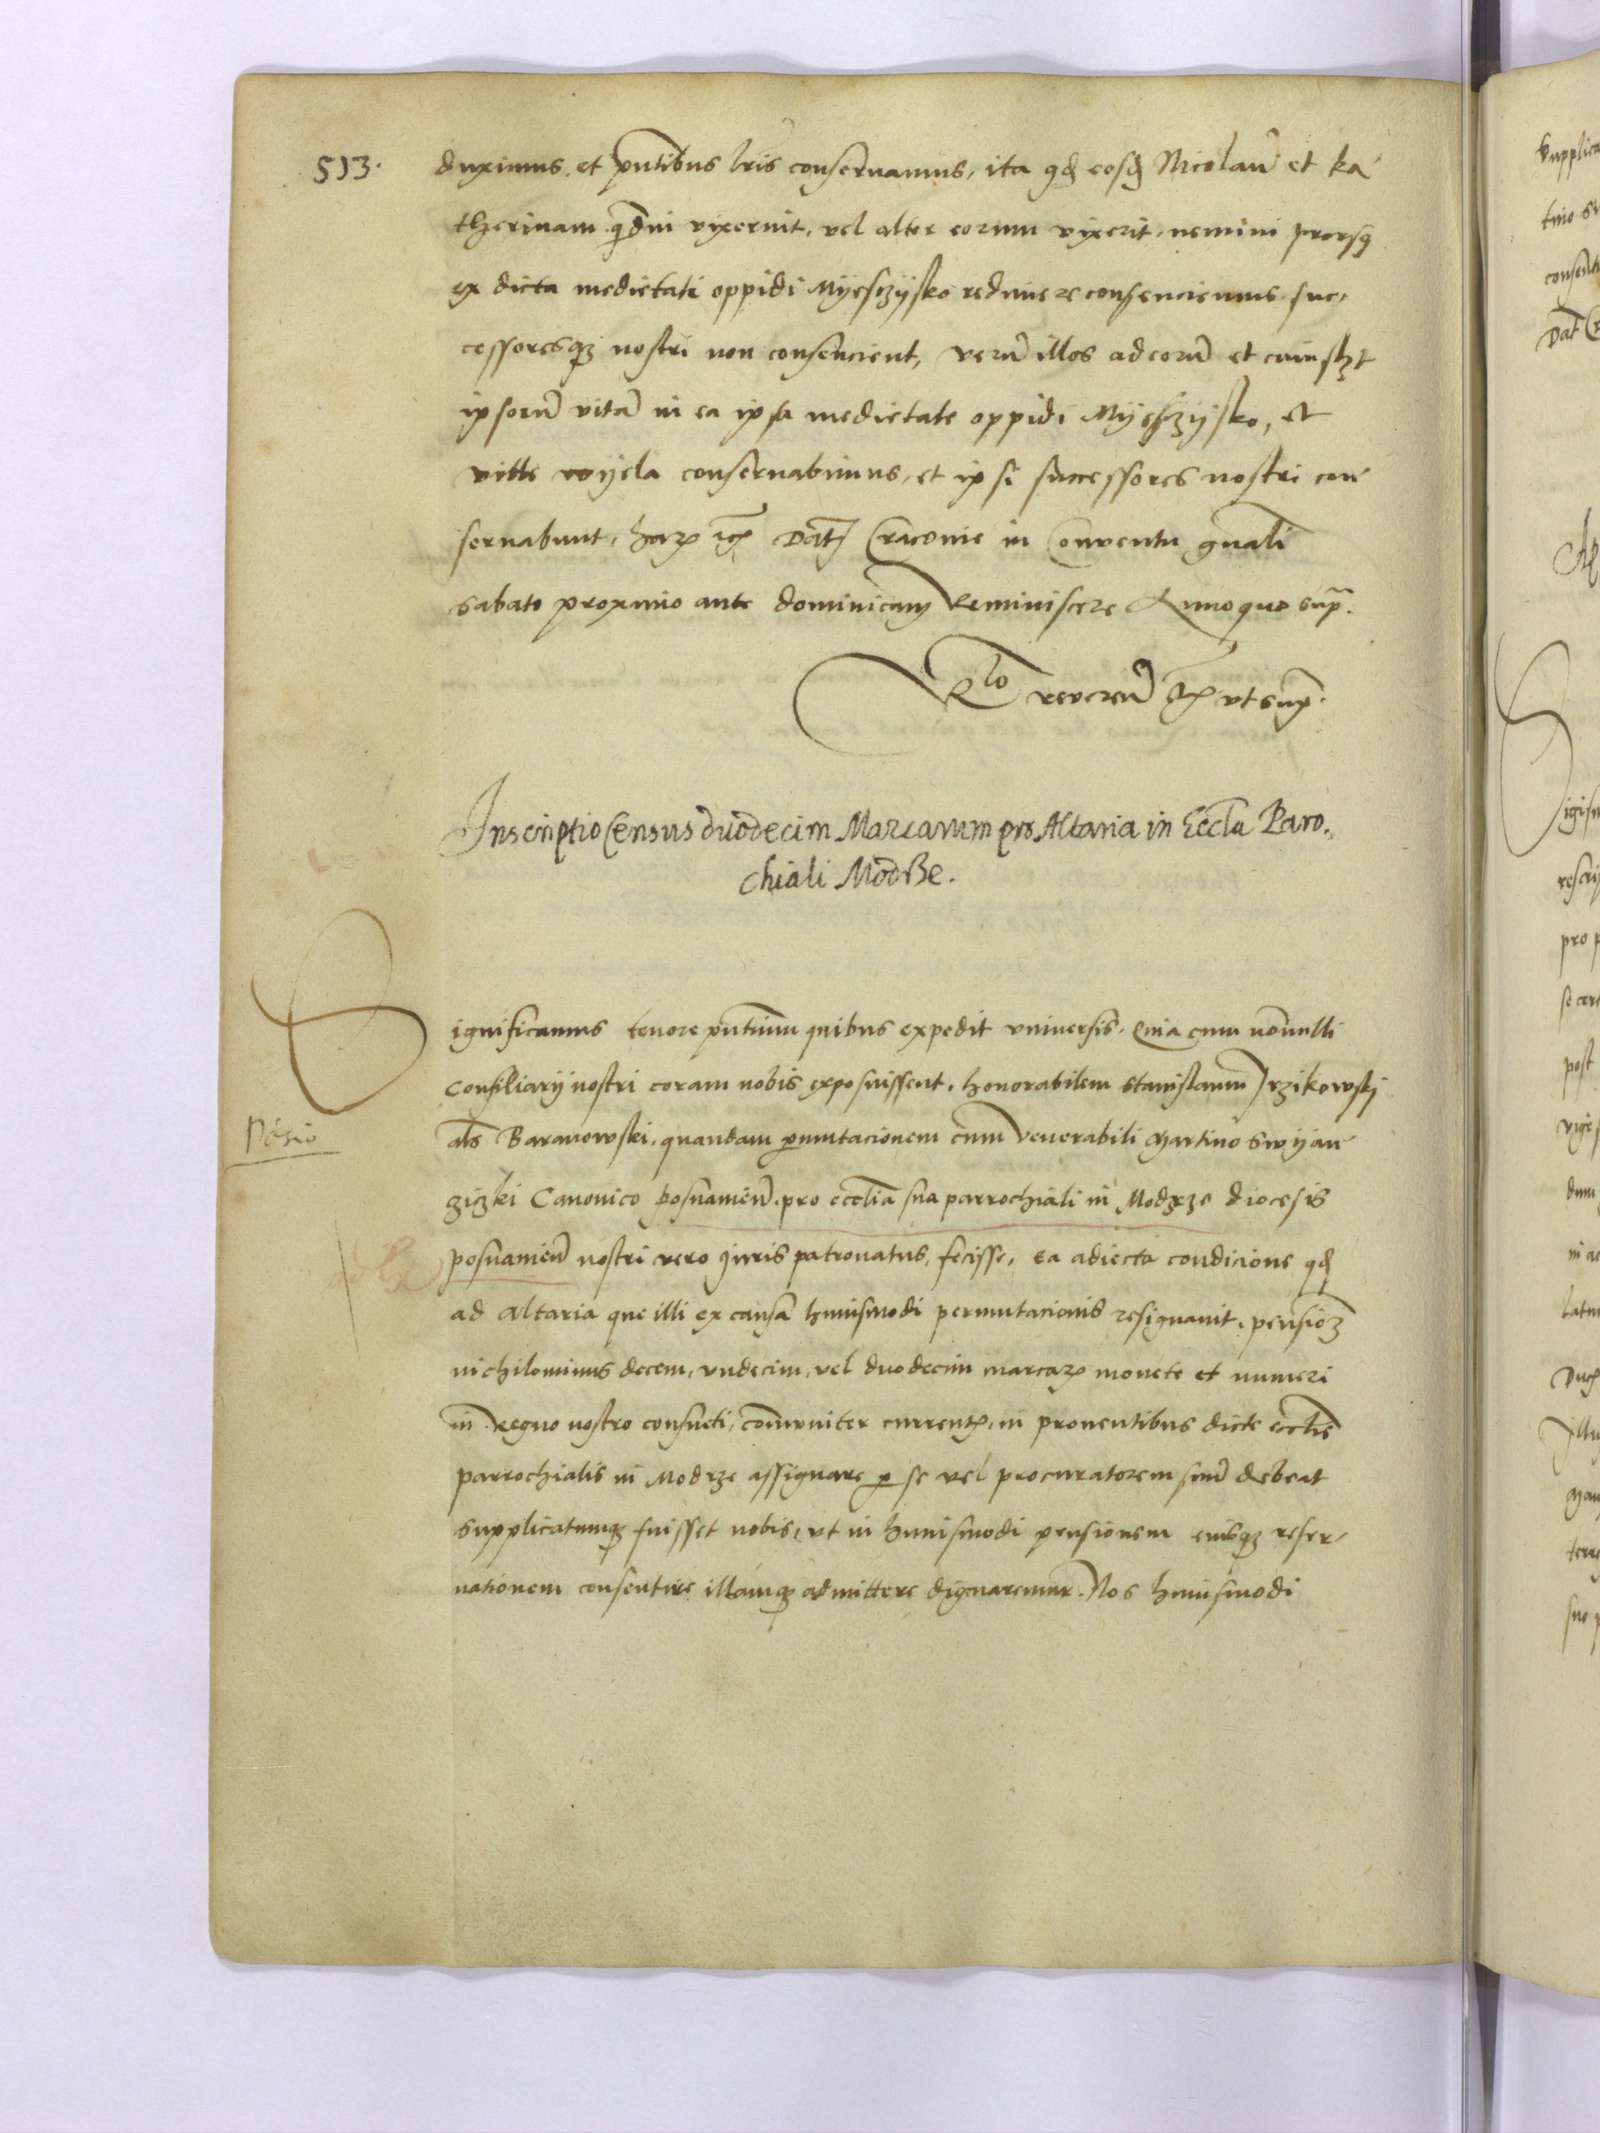 513.
duximus et pntibus lris conservamus, ita qd eosd Nicolaum et ka
therinam qdm vixerint, vel alter eorum vixerit, nemini prorsq
ex dicta medietati oppidi Myesczysko redimere consenciemus suc,
cessoresqz nostri non consencient, verum illos ad eorum et cuiuslzt
ipsorum vitam in ea ipsa medietate oppidi Myesczysko, et
ville wyela conservabimus, et ipsi successores nostri con
servabunt, harz Dat Cracovie in Conventu gnali
sabato proximo ante dominicam Reminiscere Anno quo sup.
Rlo reveren ut sup.
Inscriptio Census duodecim Marcarum pro Altaria in Eccla Paro,
chiali Modrze.
Significamus tenore pntium quibus expedit universis. Quia cum nonnulli
Consiliarij nostri coram nobis exposuissent, honorabilem Stanislaum Irzikowski
als Baranowski, quandam pmutacionem cum Venerabili Martino Swyan
ziczki Canonico posnanien. pro ecclia sua parrochiali in Modrze diocesis
posnanien nostri vero iuris patronatus, fecisse, ea adiecta condicione qd
ad altaria que illi ex causa huiusmodi permutacionis resignavit, pension
nichilominus decem, undecim, vel duodecim marcarz monete et numeri
in Regno nostro consueti, communiter currentz, in proventibus dicte ecclie
parrochialis in Modrze assignare p se vel procuratorem suum debeat
supplicatumqz fuisset nobis, ut in huiusmodi pensionem eiusqz reser,
vationem consentire illamqz admittere dignaremur. Nos huiusmodi